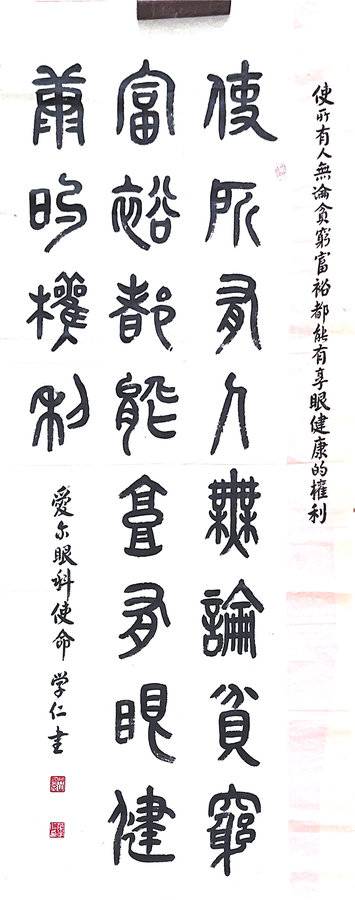 使所有人無論貧窮富裕都能有享眼健康的權利
使所有人無論貧窮
富裕都能享有眼健
康的權利
愛尔眼科使命 学仁書